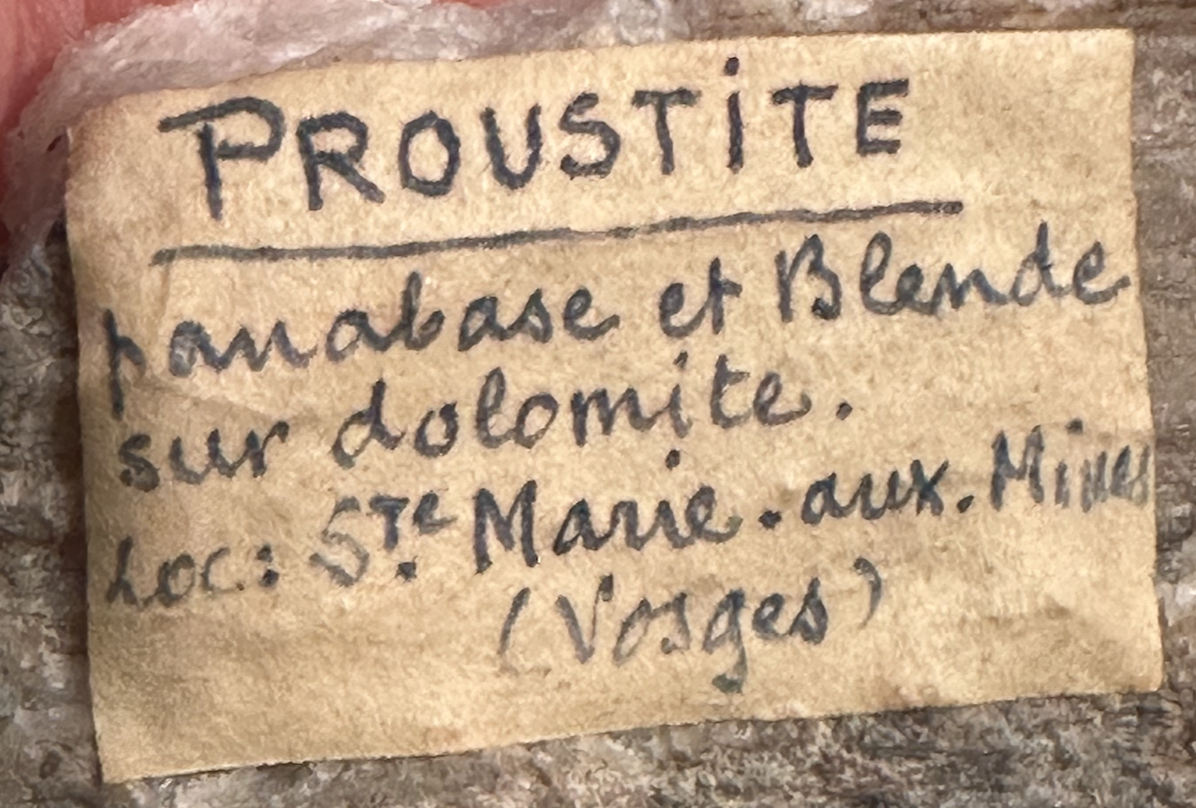 PROUSTiTE
panabase et Blende
sur dolomite.
Loc: STe Marie.aux.Mines
(Vosges)